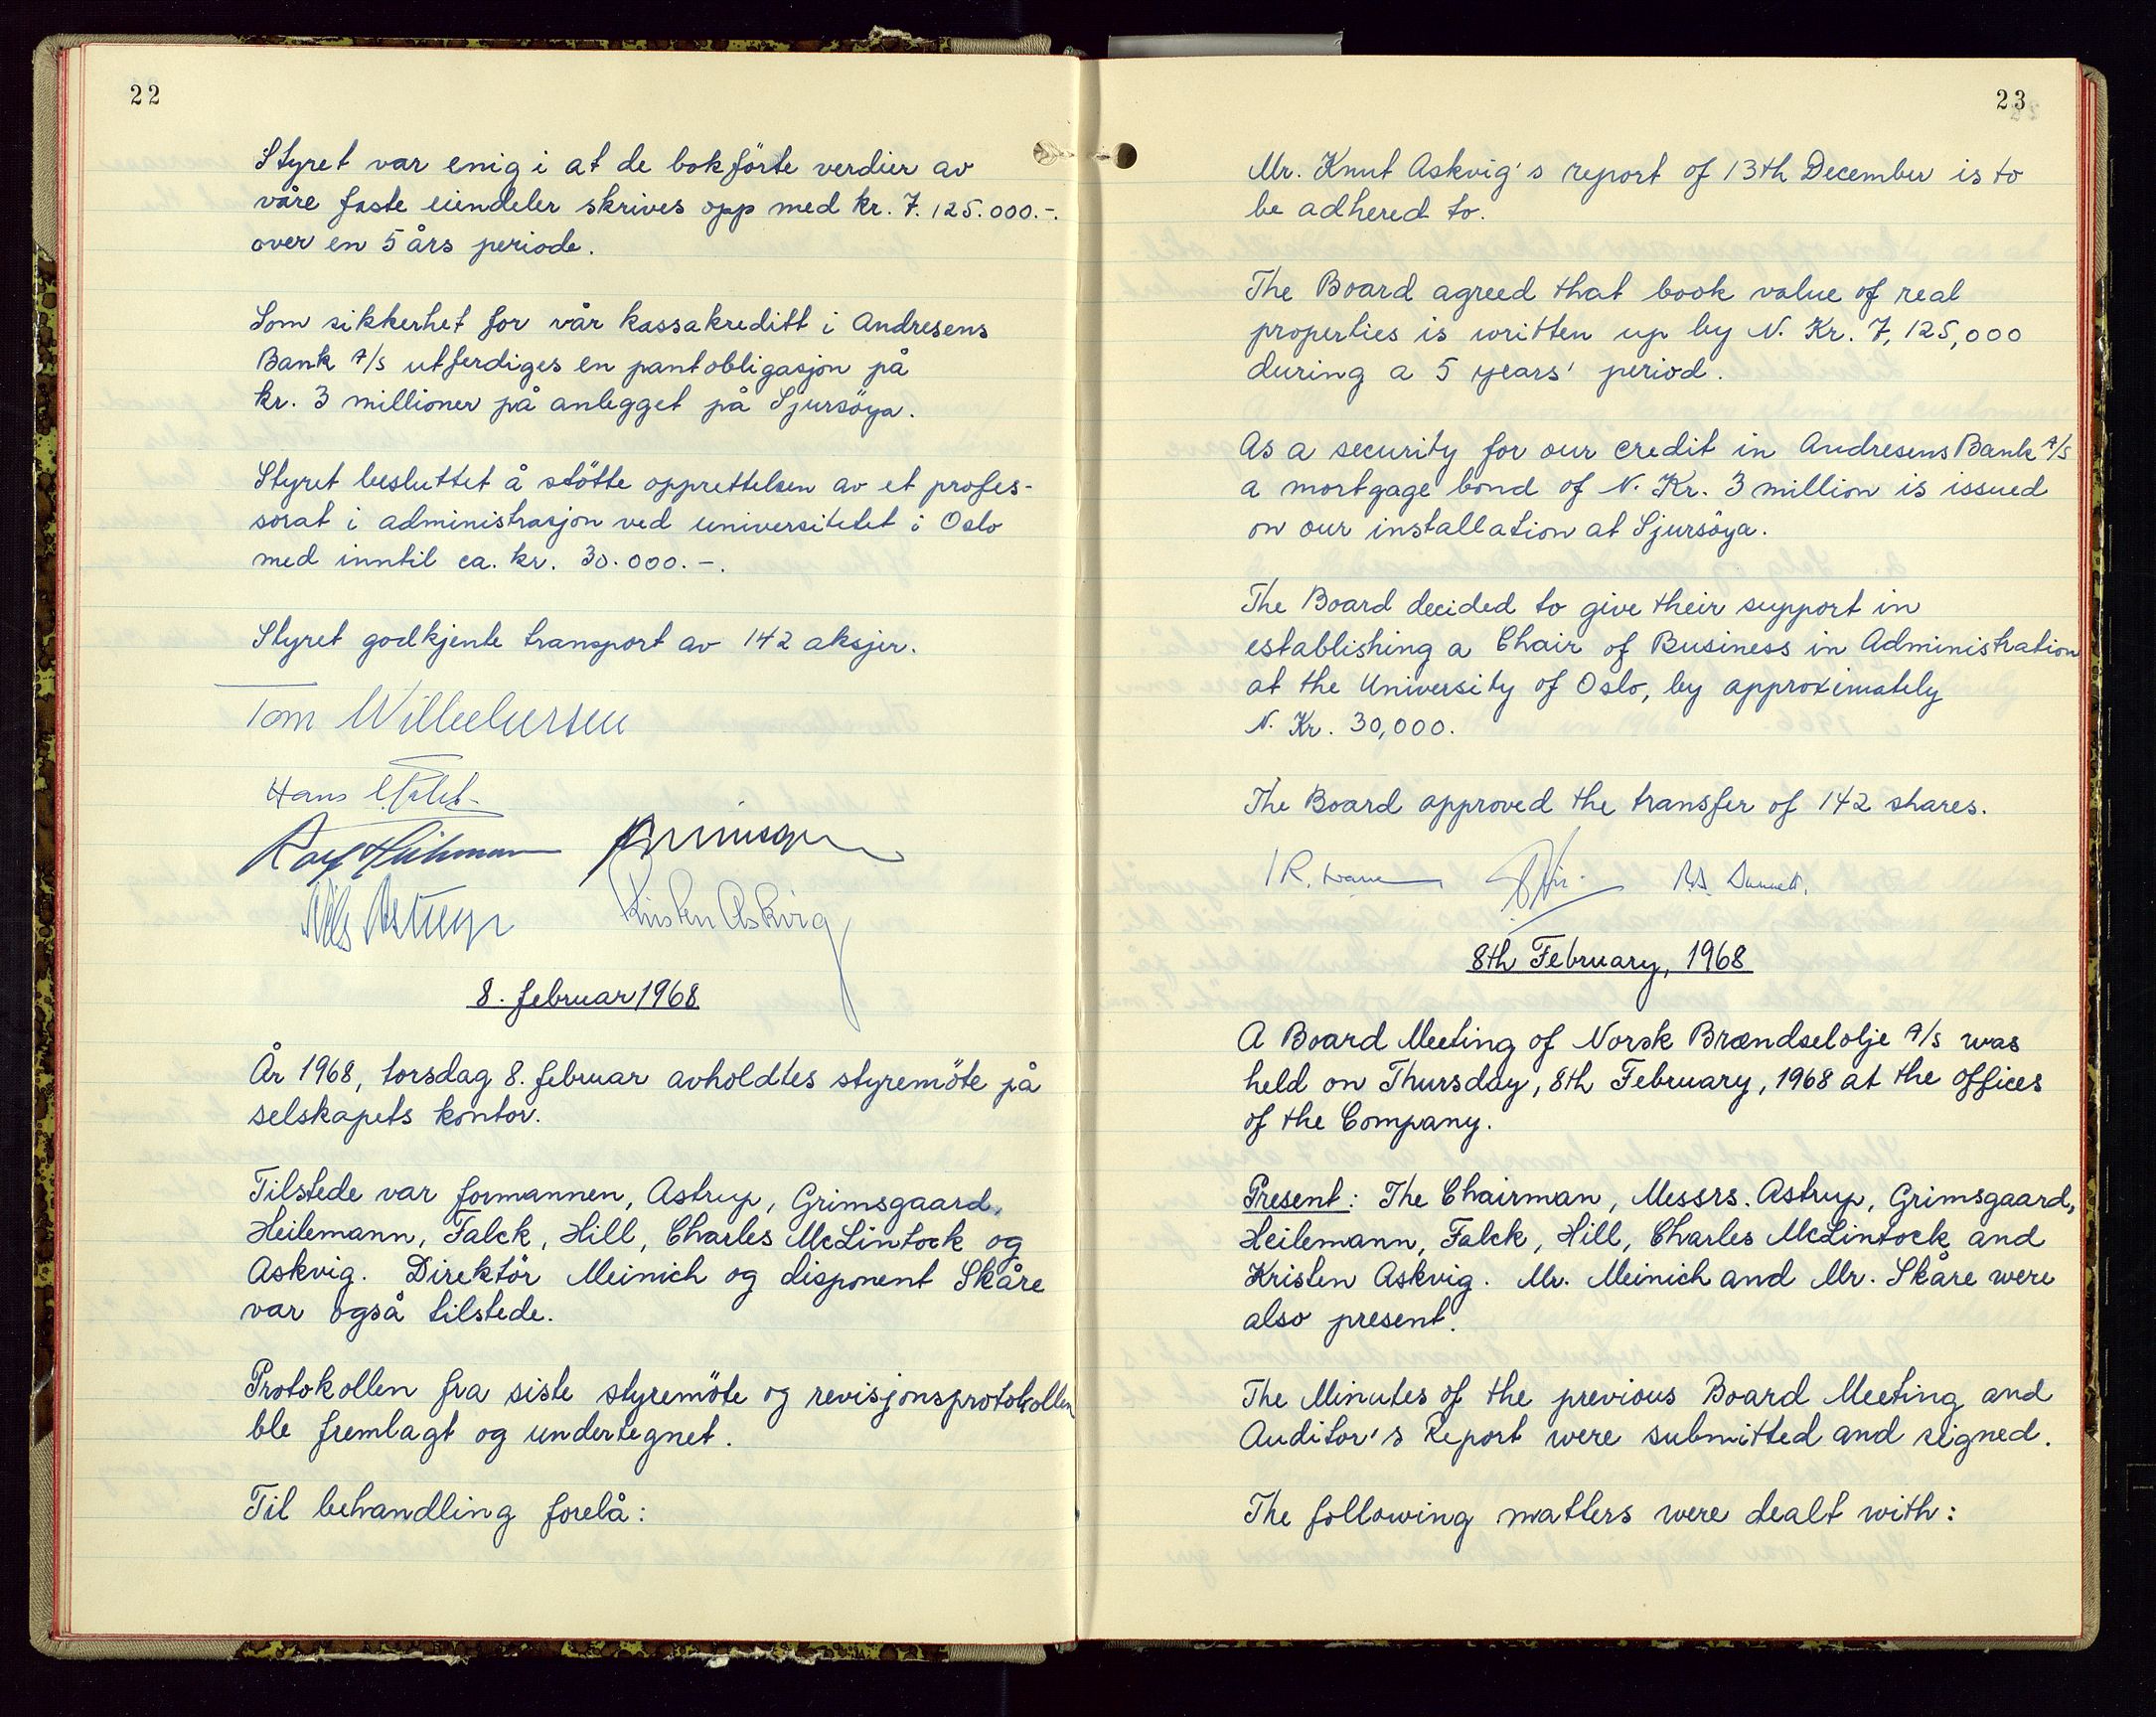 22
Styret var enig i at de bokförte verdier av
våre faste eiendeler skrives opp med kr. 7.125.000.-.
over en 5 års periode.
Som sikkerhet for vår kassakreditt i Andresens
Bank A/S utferdiges en pantobligasjon på
kr. 3 millioner på anlegget på Sjursöya.
Styret besluttet å stötte opprettelsen av et profes-
sorat i administrasjon ved universitetet i Oslo
med inntil ca. kr. 30.000.-.
Styret godkjente transport av 142 aksjer.
Tom Wilhelmsen
Hans
Nils Astrup Kristen Askvig
8. februar 1968
År 1968, torsdag 8. februar avholdtes styremöte på
selskapets kontor.
Tilstede var formannen, Astrup, Grimsgaard,
Heilemann, Falck, Hill, Charles McLintock og
Askvig. Direktör Meinich og disponent Skåre
var også tilstede.
Protokollen fra siste styremöte og revisjonsprotokollen
ble fremlagt og undertegnet.
Til behandling forelå:
23
Mr. Knut Askvig's report of 13th December is to
be adhered to.
The Board agreed that book value of real
properties is written up by N. Kr. 7,125,000
during a 5 years' period.
As a security for our credit in Andresens Bank A/S
a mortgage bond of N. Kr. 3 million is issued
on our installation at Sjursöya.
The Board decided to give their support in
establishing a Chair of Business in Administration
at the University of Oslo, by approximately
N. Kr. 30,000.
The Board approved the transfer of 142 shares.
8th February, 1968
A Board Meeting of Norsk Brændselolje A/S was
held on Thursday, 8th February, 1968 at the offices
of the Company.
Present: The Chairman, Messrs. Astrup, Grimsgaard,
Heilemann, Falck, Hill, Charles McLintock and
Kristen Askvig. Mr. Meinich and Mr. Skåre were
also present.
The Minutes of the previous Board Meeting and
Auditor's Report were submitted and signed.
The following matters were dealt with: